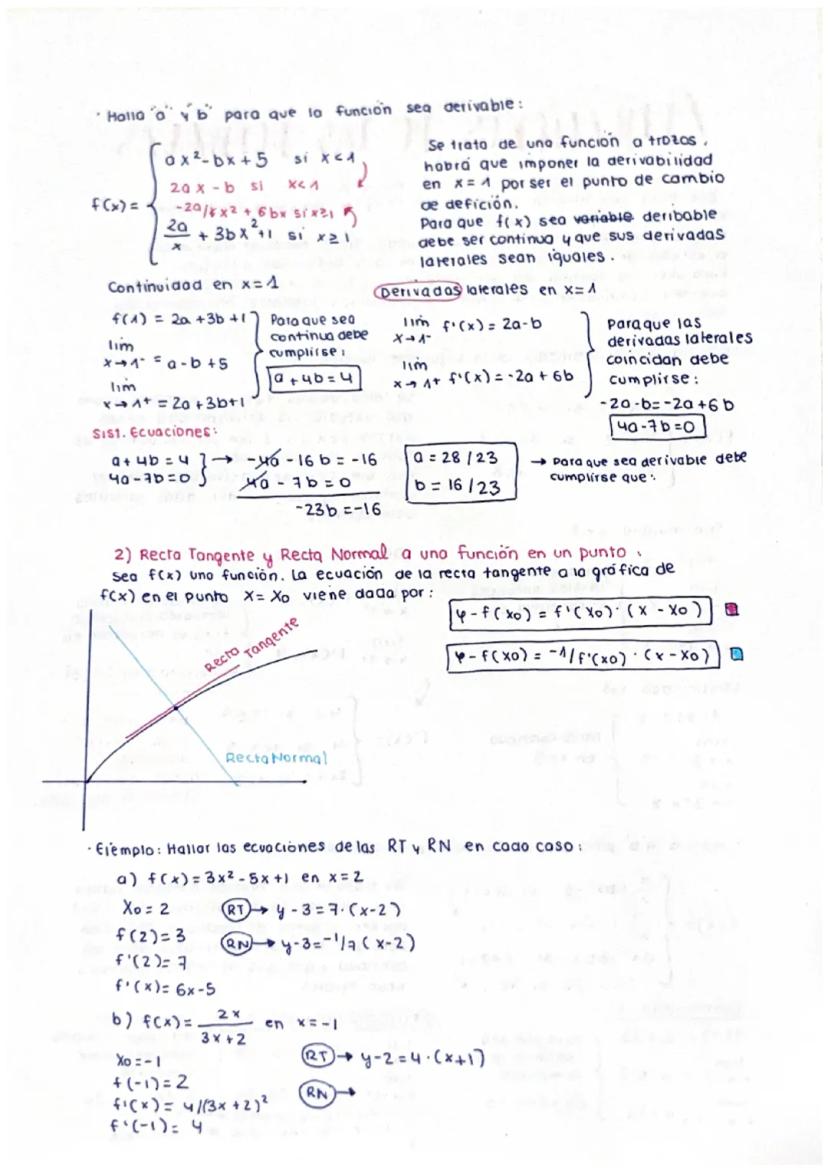 · Halla "a" y "b" para que la función sea derivable:
f(x) = { ax²-bx+5 si x<1
2ax-b si x<1
-2a/x x² + 6bx si x≥1
2a/x + 3bx²+1 si x≥1
Se trata de una función a trozos,
habrá que imponer la derivabilidad
en x=1 por ser el punto de cambio
de defición.
Para que f(x) sea variable deribable
debe ser continua y que sus derivadas
laterales sean iguales.
Continuidad en x=1
f(1) = 2a+3b+1
lim x→1⁻ = a-b+5
lim x→1+ = 2a+3b+1
Para que sea
continua debe
cumplirse:
a+4b=4
Derivadas laterales en x=1
lim x→1⁻ f'(x) = 2a-b
lim x→1+ f'(x) = -2a+6b
Para que las
derivadas laterales
coincidan debe
cumplirse:
-2a-b=-2a+6b
4a-7b=0
Sist. Ecuaciones:
a+4b=4
4a-7b=0 } → -4a-16b=-16
4a-7b=0
-23b=-16
a=28/23
b=16/23
→ Para que sea derivable debe
cumplirse que:
2) Recta Tangente y Recta Normal a una función en un punto.
Sea f(x) una función. La ecuación de la recta tangente a la gráfica de
f(x) en el punto x=x0 viene dada por:
y-f(x0) = f'(x0)·(x-x0)
y-f(x0) = -1/f'(x0)·(x-x0)
Recta Tangente
Recta Normal
· Ejemplo: Hallar las ecuaciones de las RT y RN en cada caso:
a) f(x)=3x²-5x+1 en x=2
X0=2
RT → y-3=7·(x-2)
f(2)=3
RN → y-3=-1/7(x-2)
f'(2)=7
f'(x)=6x-5
b) f(x)= 2x/3x+2 en x=-1
X0=-1
RT → y-2=4·(x+1)
f(-1)=2
f'(x)=4/(3x+2)²
RN →
f'(-1)=4